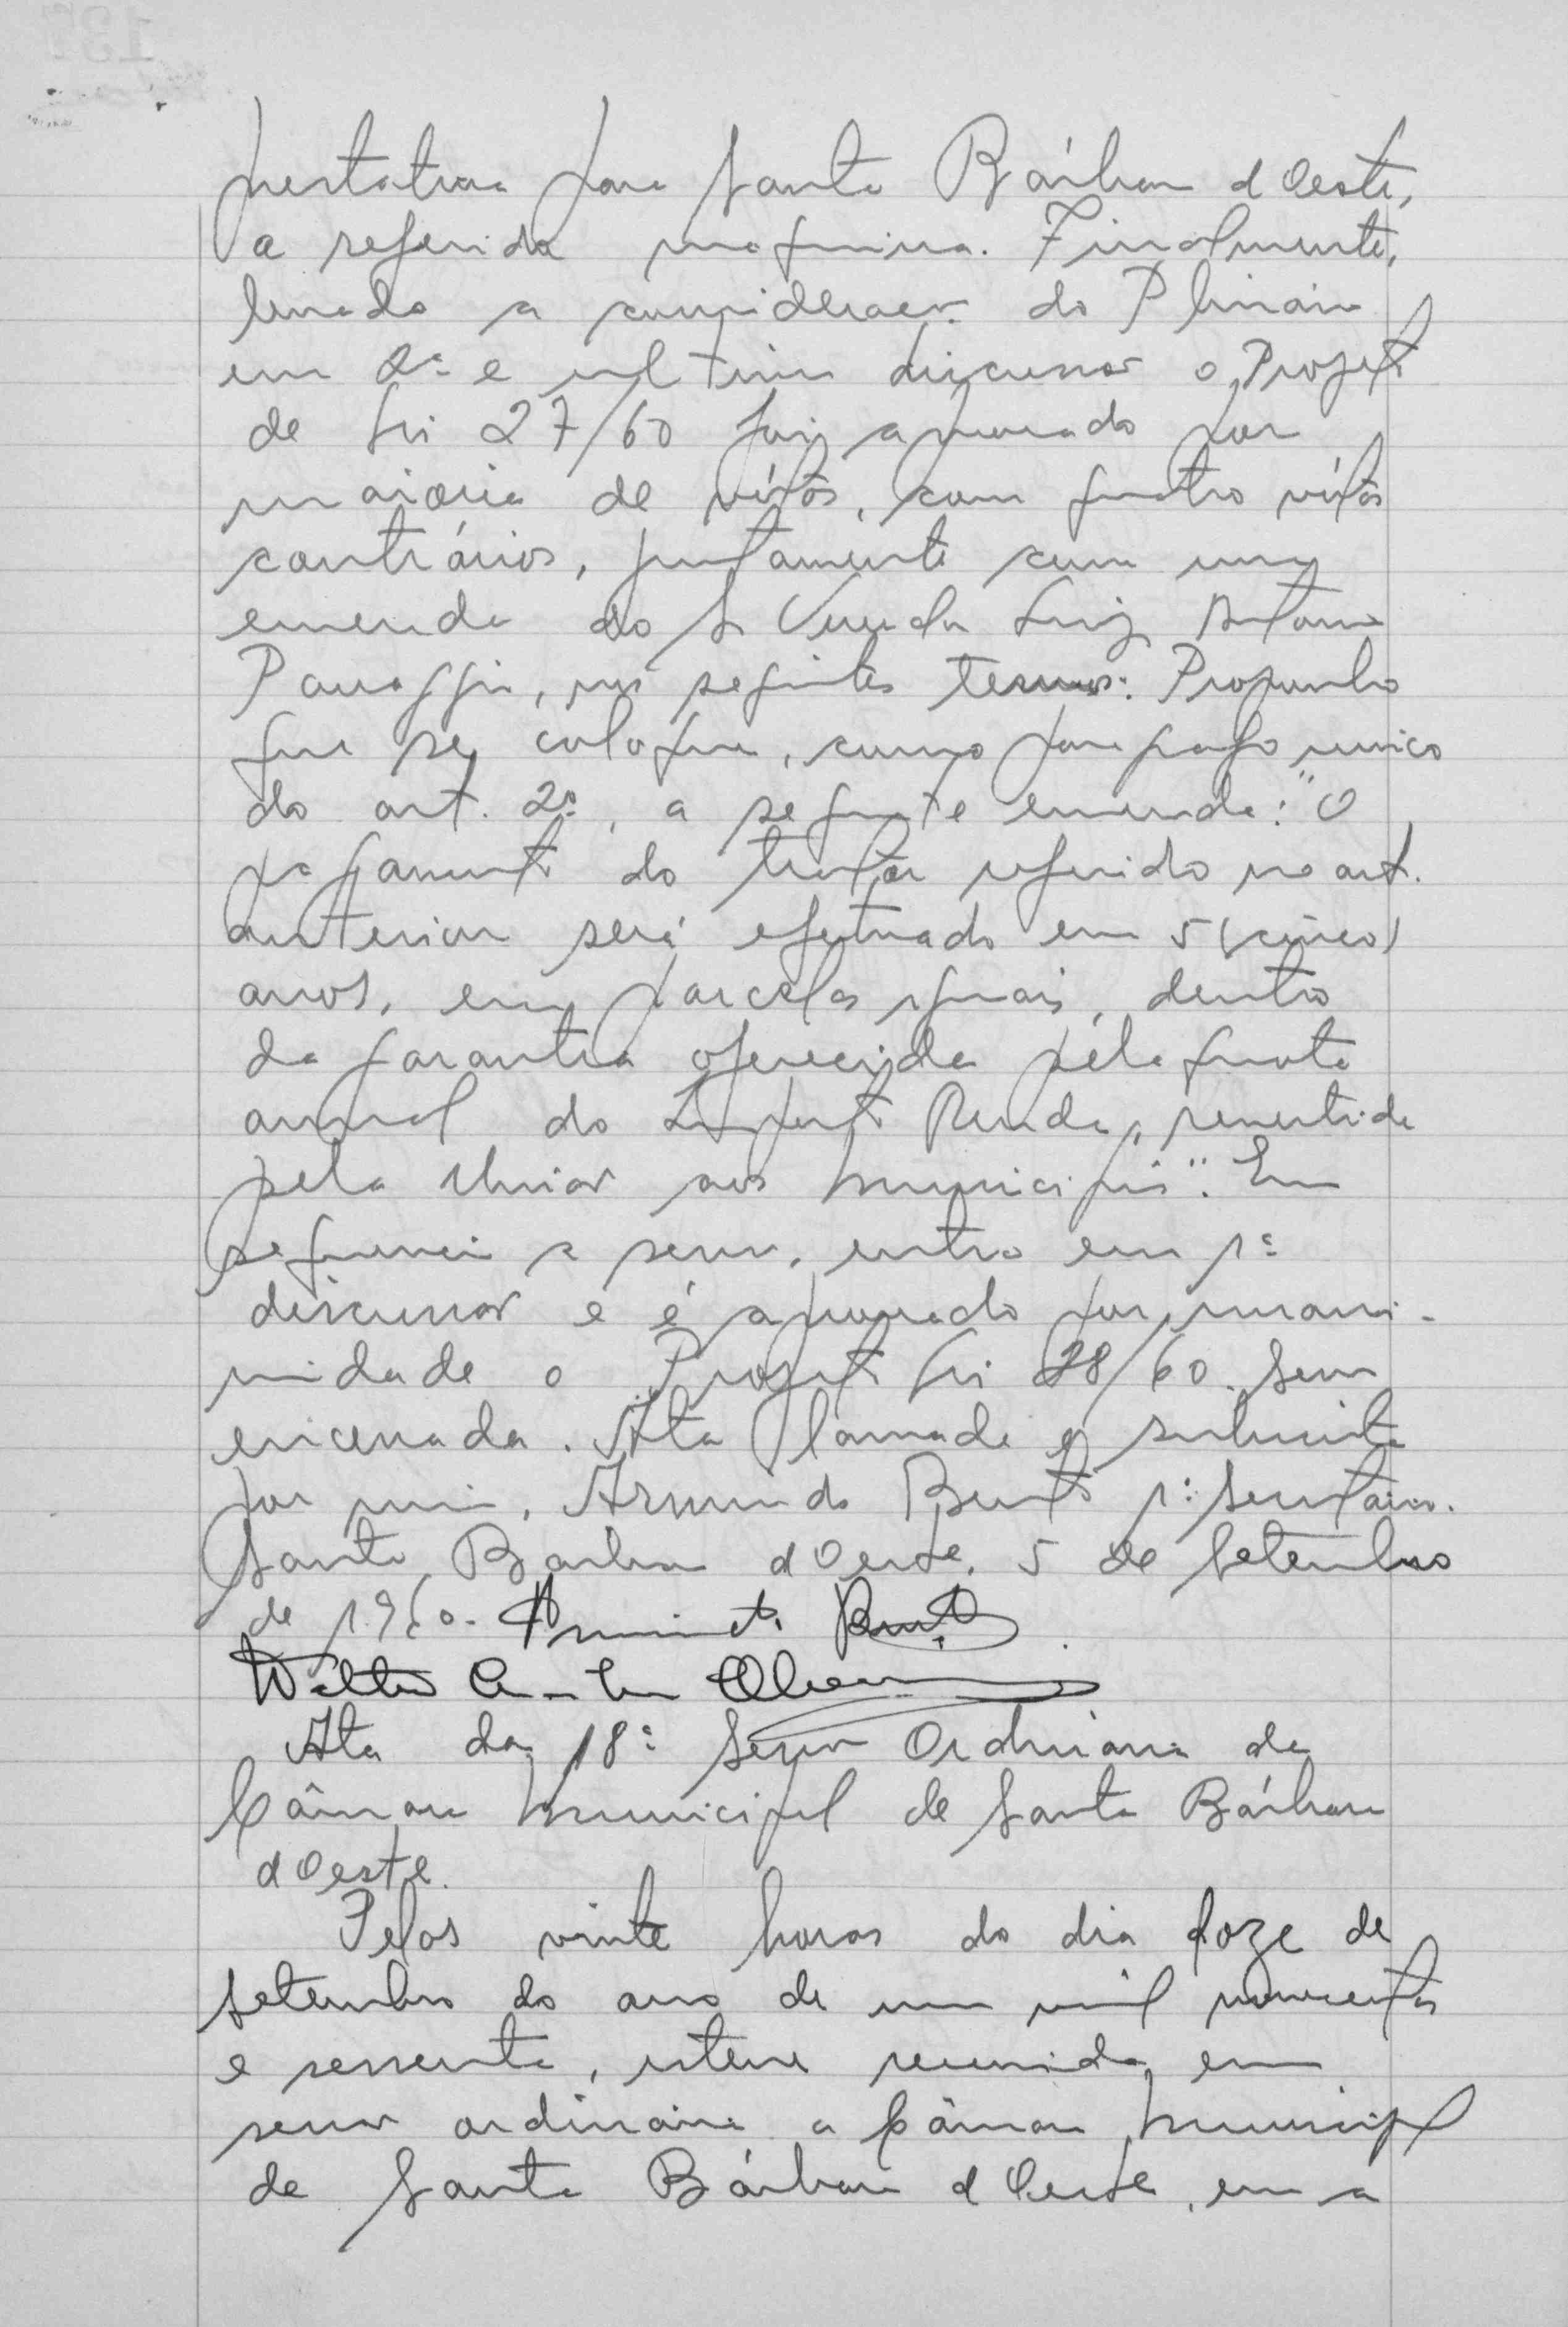 prestativa para Santa Bárbara d Oeste,
a referida maquina. Finalmente,
levado a consideração do Plenário
em 2ª e ultima discussão o Projeto
de Lei 27/60 foi aprovado por
maioria de vótos, com quatro vótos
contrários, juntamente com uma
emenda do Sr Vereador Luiz Antonio
Panaggio, nos seguintes termos: Proponho
que se coloque, como paragrafo unico
do art. 2º, a seguinte emenda: "O
pagamento do trator referido no art.
anterior será efetuado em 5 (cinco)
anos, em parcelas iguais, dentro
da garantia oferecida pela quota
anual do Imposto Renda, remetida
pela União aos Municipios". Em
sequencia a sessão, entra em 1ª
discussão e é aprovado por unani-
midade o Projeto Lei 28/60. Sessão
encerrada. Ata lavrada e subscrita
por mim, Armindo Bento 1º Secretário.
Santa Barbara d'Oeste, 5 de Setembro
de 1960. Armindo Bento
Walter
Ata da 18ª Sessão Ordinaria da
Câmara Municipal de Santa Bárbara
d Oeste.
Pelas vinte horas do dia doze de
Setembro do ano de um mil novecentos
e sessenta, esteve reunida em
sessão ordinária a Câmara Municipal
de Santa Bárbara d Oeste, em a